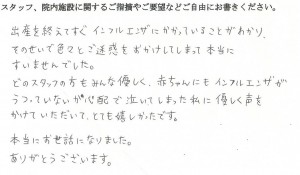 スタッフ、院内施設に関するご指摘やご要望などご自由にお書きください。
出産を終えてすぐインフルエンザにかかっていることがわかり、
そのせいで色々とご迷惑をおかけしてしまって本当に
すいませんでした。
どのスタッフの方もみんな優しく、赤ちゃんにもインフルエンザが
うつっていないか心配で泣いてしまった私に優しく声を
かけていただいて、とても嬉しかったです。
本当にお世話になりました。
ありがとうございます。